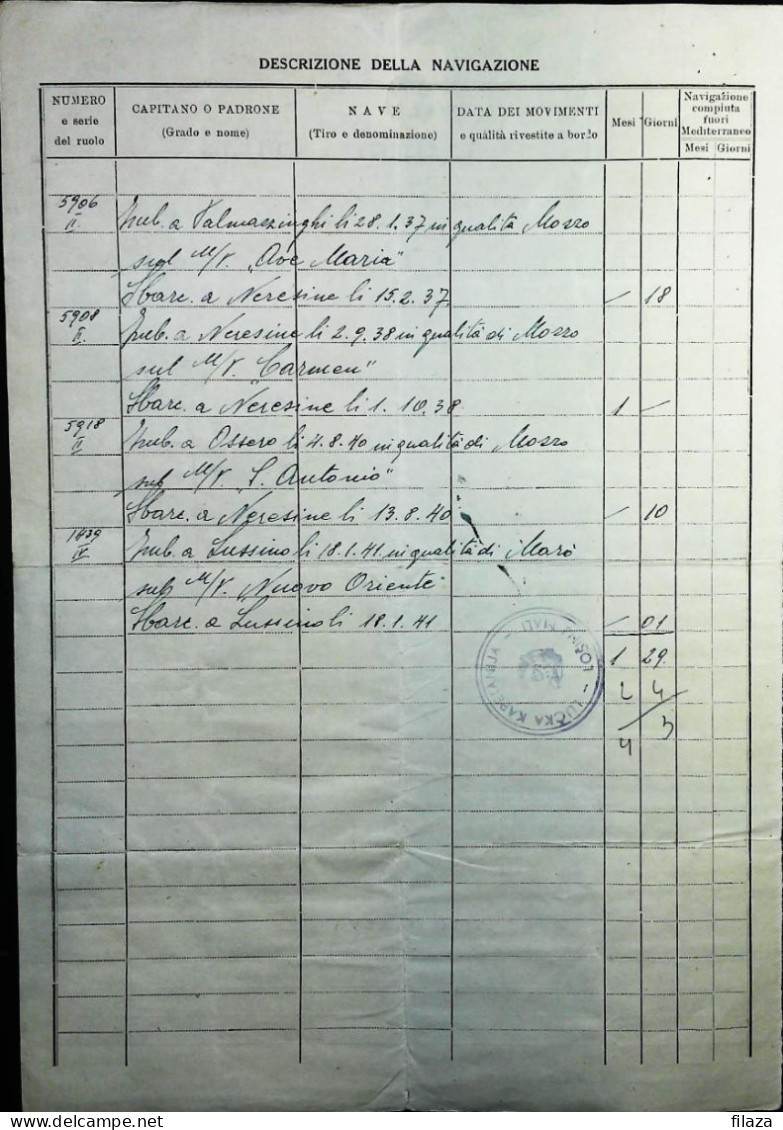 DESCRIZIONE DELLA NAVIGAZIONE
NUMERO
e serie
del ruolo
CAPITANO O PADRONE
(Grado e nome)
NAVE
(Tiro e denominazione)
DATA DEI MOVIMENTI
e qualità rivestite a bordo
Mesi
Giorni
Navigazione
compiuta
fuori
Mediterraneo
Mesi Giorni
5906
II
Imb. a Valmazzinghi li 28.1.37 in qualità Mozzo
sul M/V. "Ave Maria"
Sbarc. a Neresine li 15.2.37 / 18
5908
II
Imb. a Neresine li 2.9.38 in qualità di Mozzo
sul M/V. "Carmen"
Sbarc. a Neresine li 1.10.38 1 /
5918
II
Imb. a Ossero li 4.8.40 in qualità di Mozzo
sul M/V. "S. Antonio"
Sbarc. a Neresine li 13.8.40 / 10
1439
IV
Imb. a Lussino li 18.1.41 in qualità di Marò
sul M/V. Nuovo Oriente
Sbarc. a Lussino li 18.1.41 / 01
1 29
2 4
4 3
LUČKA KAPETANIJA - LOŠINJ MALI -
delcampe.net
filaza